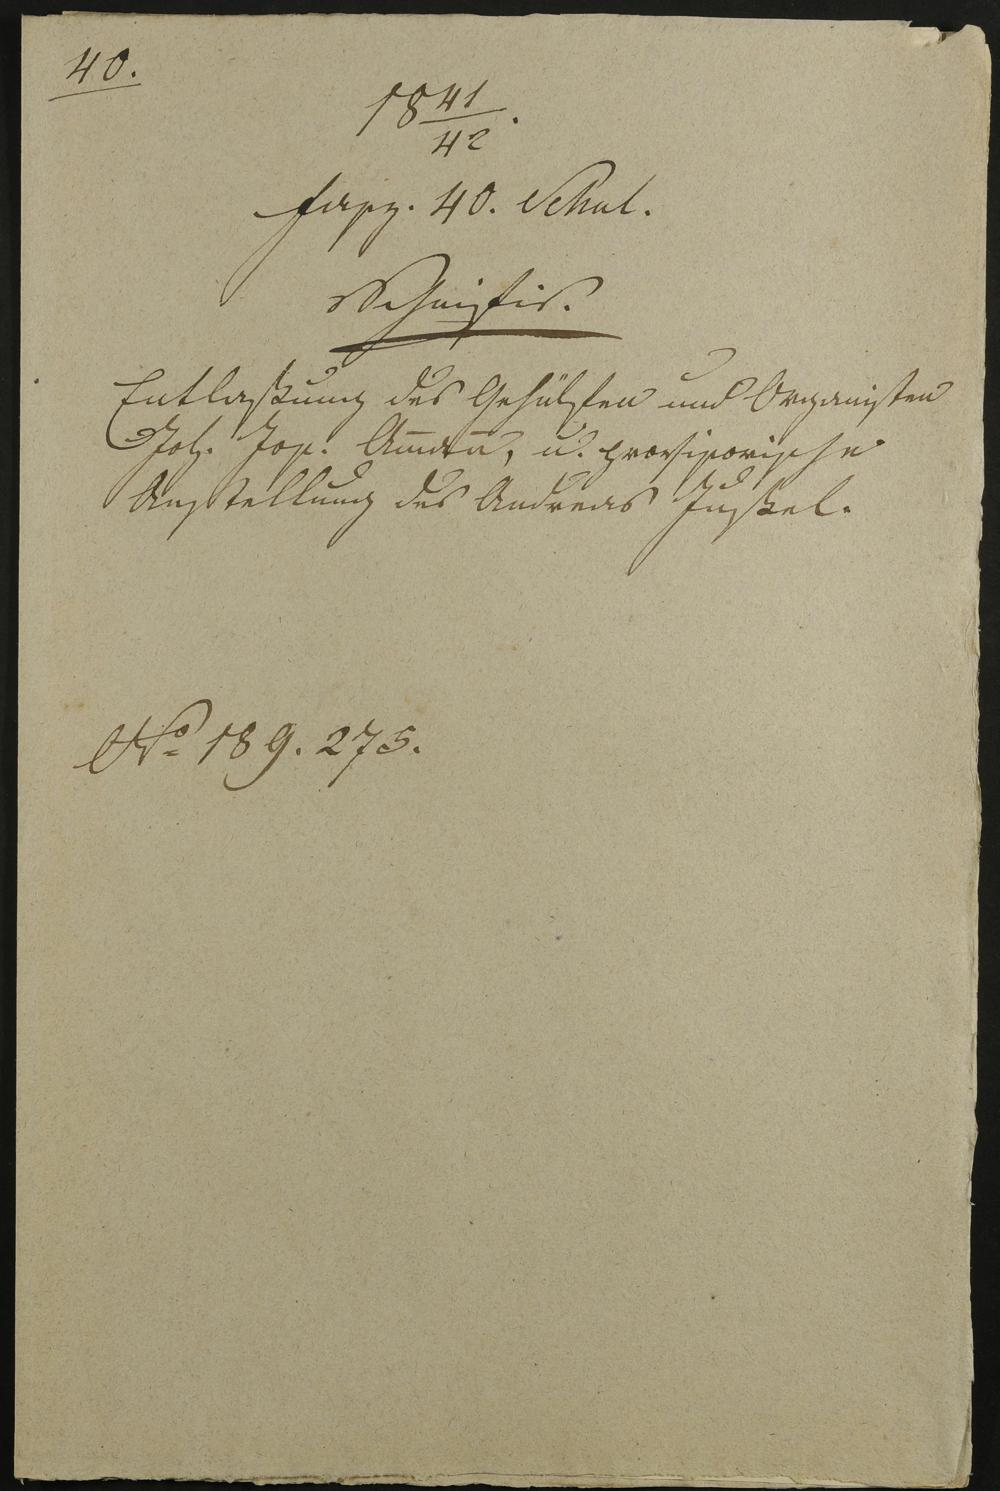 40.
18 41/42.
Fasz. 40. Schul.
Schnifis.
Entlaßung des Gehülfen und Organisten
Joh. Jos. Am̄an̄, u. provisorische
Anstellung des Andreas Jußel.
No 189. 275.